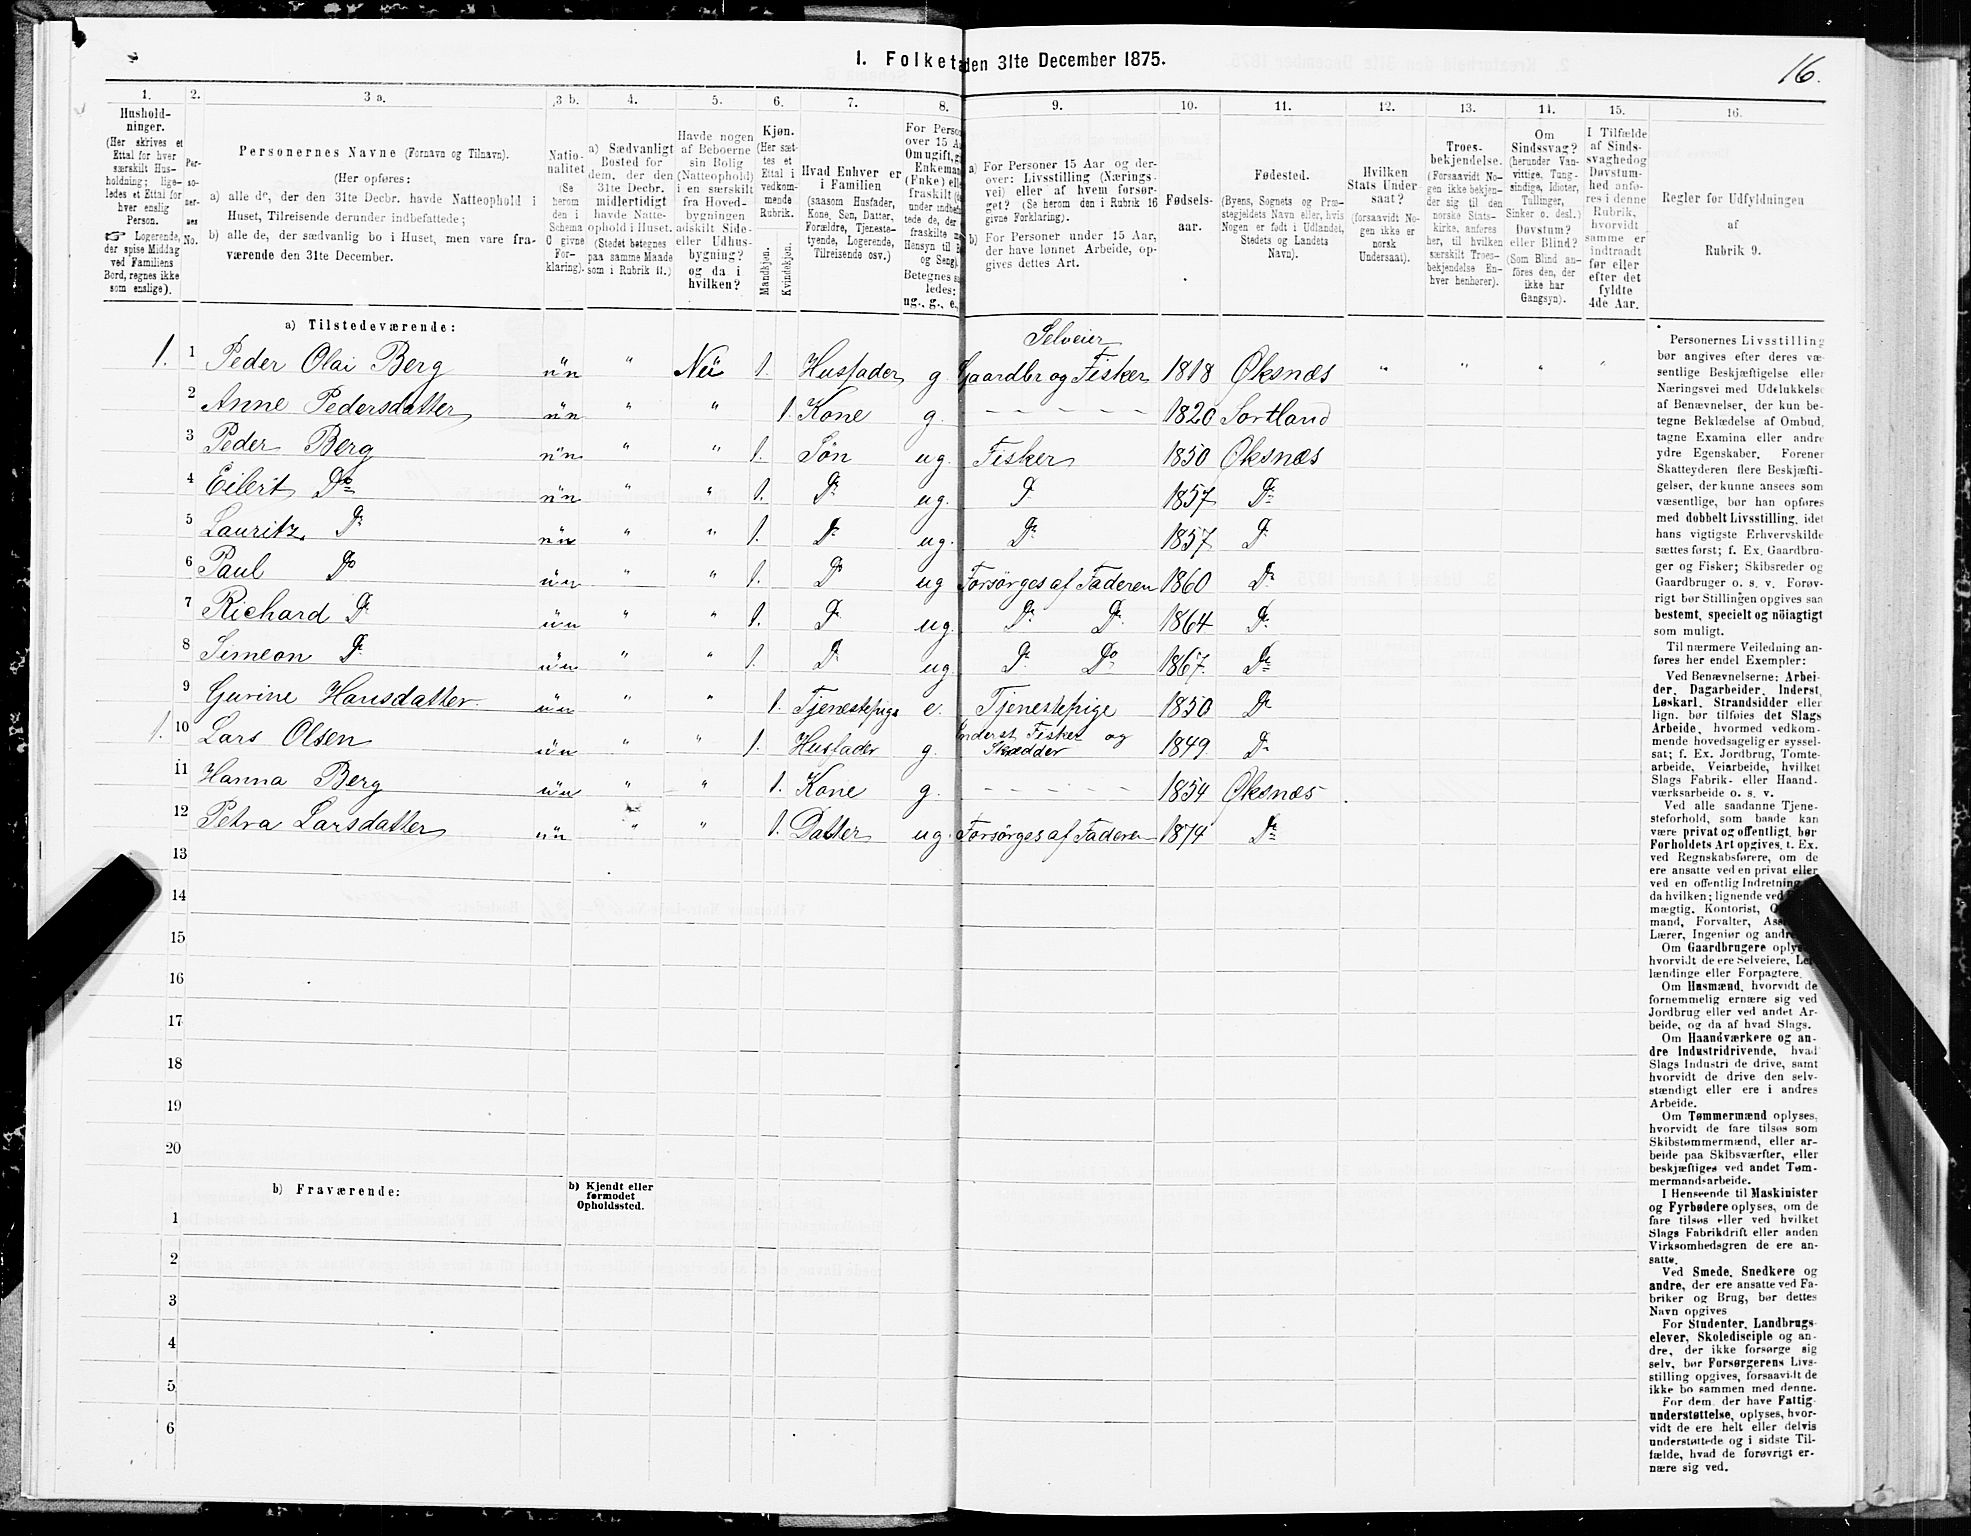 I. Folket den 31te December 1875.
16.
1. 2. 3 a. 3 b. 4. 5. 6. 7. 8. 9. 10. 11. 12. 13. 14. 15. 16.
Hushold-
ninger.
(Her skrives et
Ettal for hver
særskilt Hus-
holdning; lige-
ledes et Ettal for
hver enslig
Person.
☞ Logerende,
der spise Middag
ved Familiens
Bord, regnes ikke
som enslige).
Per-
so-
ner-
nes
No.
Personernes Navne (Fornavn og Tilnavn).
(Her opføres:
a) alle de, der den 31te Decbr. havde Natteophold i
Huset, Tilreisende derunder indbefattede;
b) alle de, der sædvanlig bo i Huset, men vare fra-
værende den 31te December.
Natio-
nalitet
(Se
herom
den i
Schema
O givne
For-
klaring).
a) Sædvanligt
Bosted for
dem, der den
31te Decbr.
midlertidigt
havde Natte-
ophold i Huset.
(Stedet betegnes
paa samme Maade
som i Rubrik 11.)
Havde nogen
af Beboerne
sin Bolig
(Natteophold)
i en særskilt
fra Hoved-
bygningen
adskilt Side-
eller Udhus-
bygning?
og da i
hvilken?
Kjøn.
(Her sæt-
tes et
Ettal i
vedkom-
mende
Rubrik.
Mandkjøn.
Kvindekjøn.
Hvad Enhver er
i Familien
(saasom Husfader,
Kone, Søn, Datter,
Forældre, Tjeneste-
tyende, Logerende,
Tilreisende osv.)
For Perso
over 15 A
Om ugift, g
Enkema
(Enke) ell
fraskilt (
under indbef
tede de, der
fraskilte
Hensyn til B
og Seng).
Betegnes s
ledes:
ug., g., e.,
a) For Personer 15 Aar og der-
over: Livsstilling (Nærings-
vei) eller af hvem forsør-
get? (Se herom den i Rubrik 16
givne Forklaring).
b) For Personer under 15 Aar,
der have lønnet Arbeide, op-
gives dettes Art.
Fødsels-
aar.
Fødested.
(Byens, Sognets og Præ-
stegjeldets Navn eller, hvis
Nogen er født i Udlandet,
Stedets og Landets
Navn).
Hvilken
Stats Under-
saat?
(forsaavidt No-
gen ikke er
norsk
Undersaat).
Troes-
bekjendelse.
(Forsaavidt No-
gen ikke bekjen-
der sig til den
norske Stats-
kirke, anføres
her, til hvilken
særskilt Troes-
bekjendelse En-
hver henhører).
Om
Sindssvag?
(herunder Van-
vittige, Tung-
sindige, Idioter,
Tullinger,
Sinker o. desl.)
Døvstum?
eller Blind?
(Som Blind an-
føres den, der
ikke har
Gangsyn).
I Tilfælde
af Sinds-
svaghed og
Døvstum-
hed anfø-
res i denne
Rubrik,
hvorvidt
samme er
indtraadt
før eller
efter det
fyldte
4de Aar.
Regler for Udfyldningen
af
Rubrik 9.
a) Tilstedeværende:
Selveier
1. 1 Peder Olai Berg n " Nei 1. Husfader g. Gaardbr og Fisker 1818 Øksnæs " " " "
2 Anne Pedersdatter n " " 1. Kone g. - - - - - 1820 Sortland
3 Peder Berg n " " 1. Søn ug. Fisker 1850 Øksnæs
4 Eilert Do n " " 1. Do ug. Do 1857 Do
5 Lauritz Do n " " 1. Do ug. Do 1857 Do
6 Paul Do n " " 1. Do ug Forsørges af Faderen 1860 Do
7 Richard Do n " " 1. Do ug. Do Do 1864 Do
8 Simeon Do n " " 1. Do ug. Do Do 1867. Do
9 Gurine Hansdatter n " " 1. Tjenestepige e. Tjenestepige 1850 Do
1. 10 Lars Olsen n " " 1. Husfader g. Inderst Fisker og Skrædder 1849. Do
11 Hanna Berg n " " 1. Kone g. - - - - - 1854 Øksnæs
12 Petra Larsdatter n " " 1. Datter ug. Forsørges af Faderen 1874 Do
13
14
15
16
17
18
19
20
b) Fraværende:
b) Kjendt eller
formodet
Opholdssted.
1
2
3
4
5
6
Personernes Livsstilling
bør angives efter deres væ-
sentlige Beskjæftigelse eller
Næringsvei med Udelukkelse
af Benævnelser, der kun be-
tegne Beklædelse af Ombud,
tagne Examina eller andre
ydre Egenskaber. Forener
Skatteyderen flere Beskjæfti-
gelser, der kunne ansees som
væsentlige, bør han opføres
med dobbelt Livsstilling, idet
hans vigtigste Erhvervskilde
sættes først; f. Ex. Gaardbru-
ger og Fisker; Skibsreder og
Gaardbruger o. s. v. Forøv-
rigt bør Stillingen opgives saa
bestemt, specielt og nöiagtigt
som muligt.
Til nærmere Veiledning an-
føres her endel Exempler:
Ved Benævnelserne: Arbei-
der, Dagarbeider, Inderst,
Løskarl, Strandsidder eller
lign. bør tilføies det Slags
Arbeide, hvormed vedkom-
mende hovedsagelig er syssel-
sat; f. Ex. Jordbrug, Tomte-
arbeide, Veiarbeide, hvilket
Slags Fabrik- eller Haand-
værksarbeide o. s. v.
Ved alle saadanne Tjene-
steforhold, som baade kan
være privat og offentligt, bør
Forholdets Art opgives, t. Ex.
ved Regnskabsførere, om de
ere ansatte ved en privat eller
ved en offentlig Indretning
da hvilken; lignende ved
mægtig, Kontorist,
mand, Forvalter,
Lærer, Ingeniør og
Om Gaardbrugere
hvorvidt de ere Selveiere,
lændinge eller Forpagtere.
Om Husmænd, hvorvidt de
fornemmelig ernære sig ved
Jordbrug eller ved andet Ar-
beide, og da af hvad Slags.
Om Haandværkere og an-
dre Industridrivende, hvad
Slags Industri de drive, samt
hvorvidt de drive den selv-
stændigt eller ere i andres
Arbeide.
Om Tømmermænd oplyses,
hvorvidt de fare tilsøs som
Skibstømmermænd, eller ar-
beide paa Skibsværfter, eller
beskjæftiges ved andet Tøm-
mermandsarbeide.
I Henseende til Maskinister
og Fyrbødere oplyses, om de
fare tilsøs eller ved hvilket
Slags Fabrikdrift eller anden
Virksomhedsgren de ere an-
satte.
Ved Smede, Snedkere og
andre, der ere ansatte ved Fa-
briker og Brug, bør dettes
Navn opgives
For Studenter, Landbrugs-
elever, Skoledisciple og an-
dre, der ikke forsørge sig
selv, bør Forsørgerens Livs-
stilling opgives, forsaavidt de
ikke bo sammen med denne.
For dem, der have Fattig-
understøttelse, oplyses, hvor-
vidt de ere helt eller delvis
understøttede og i sidste Til-
fælde, hvad de forøvrigt er-
nære sig ved.